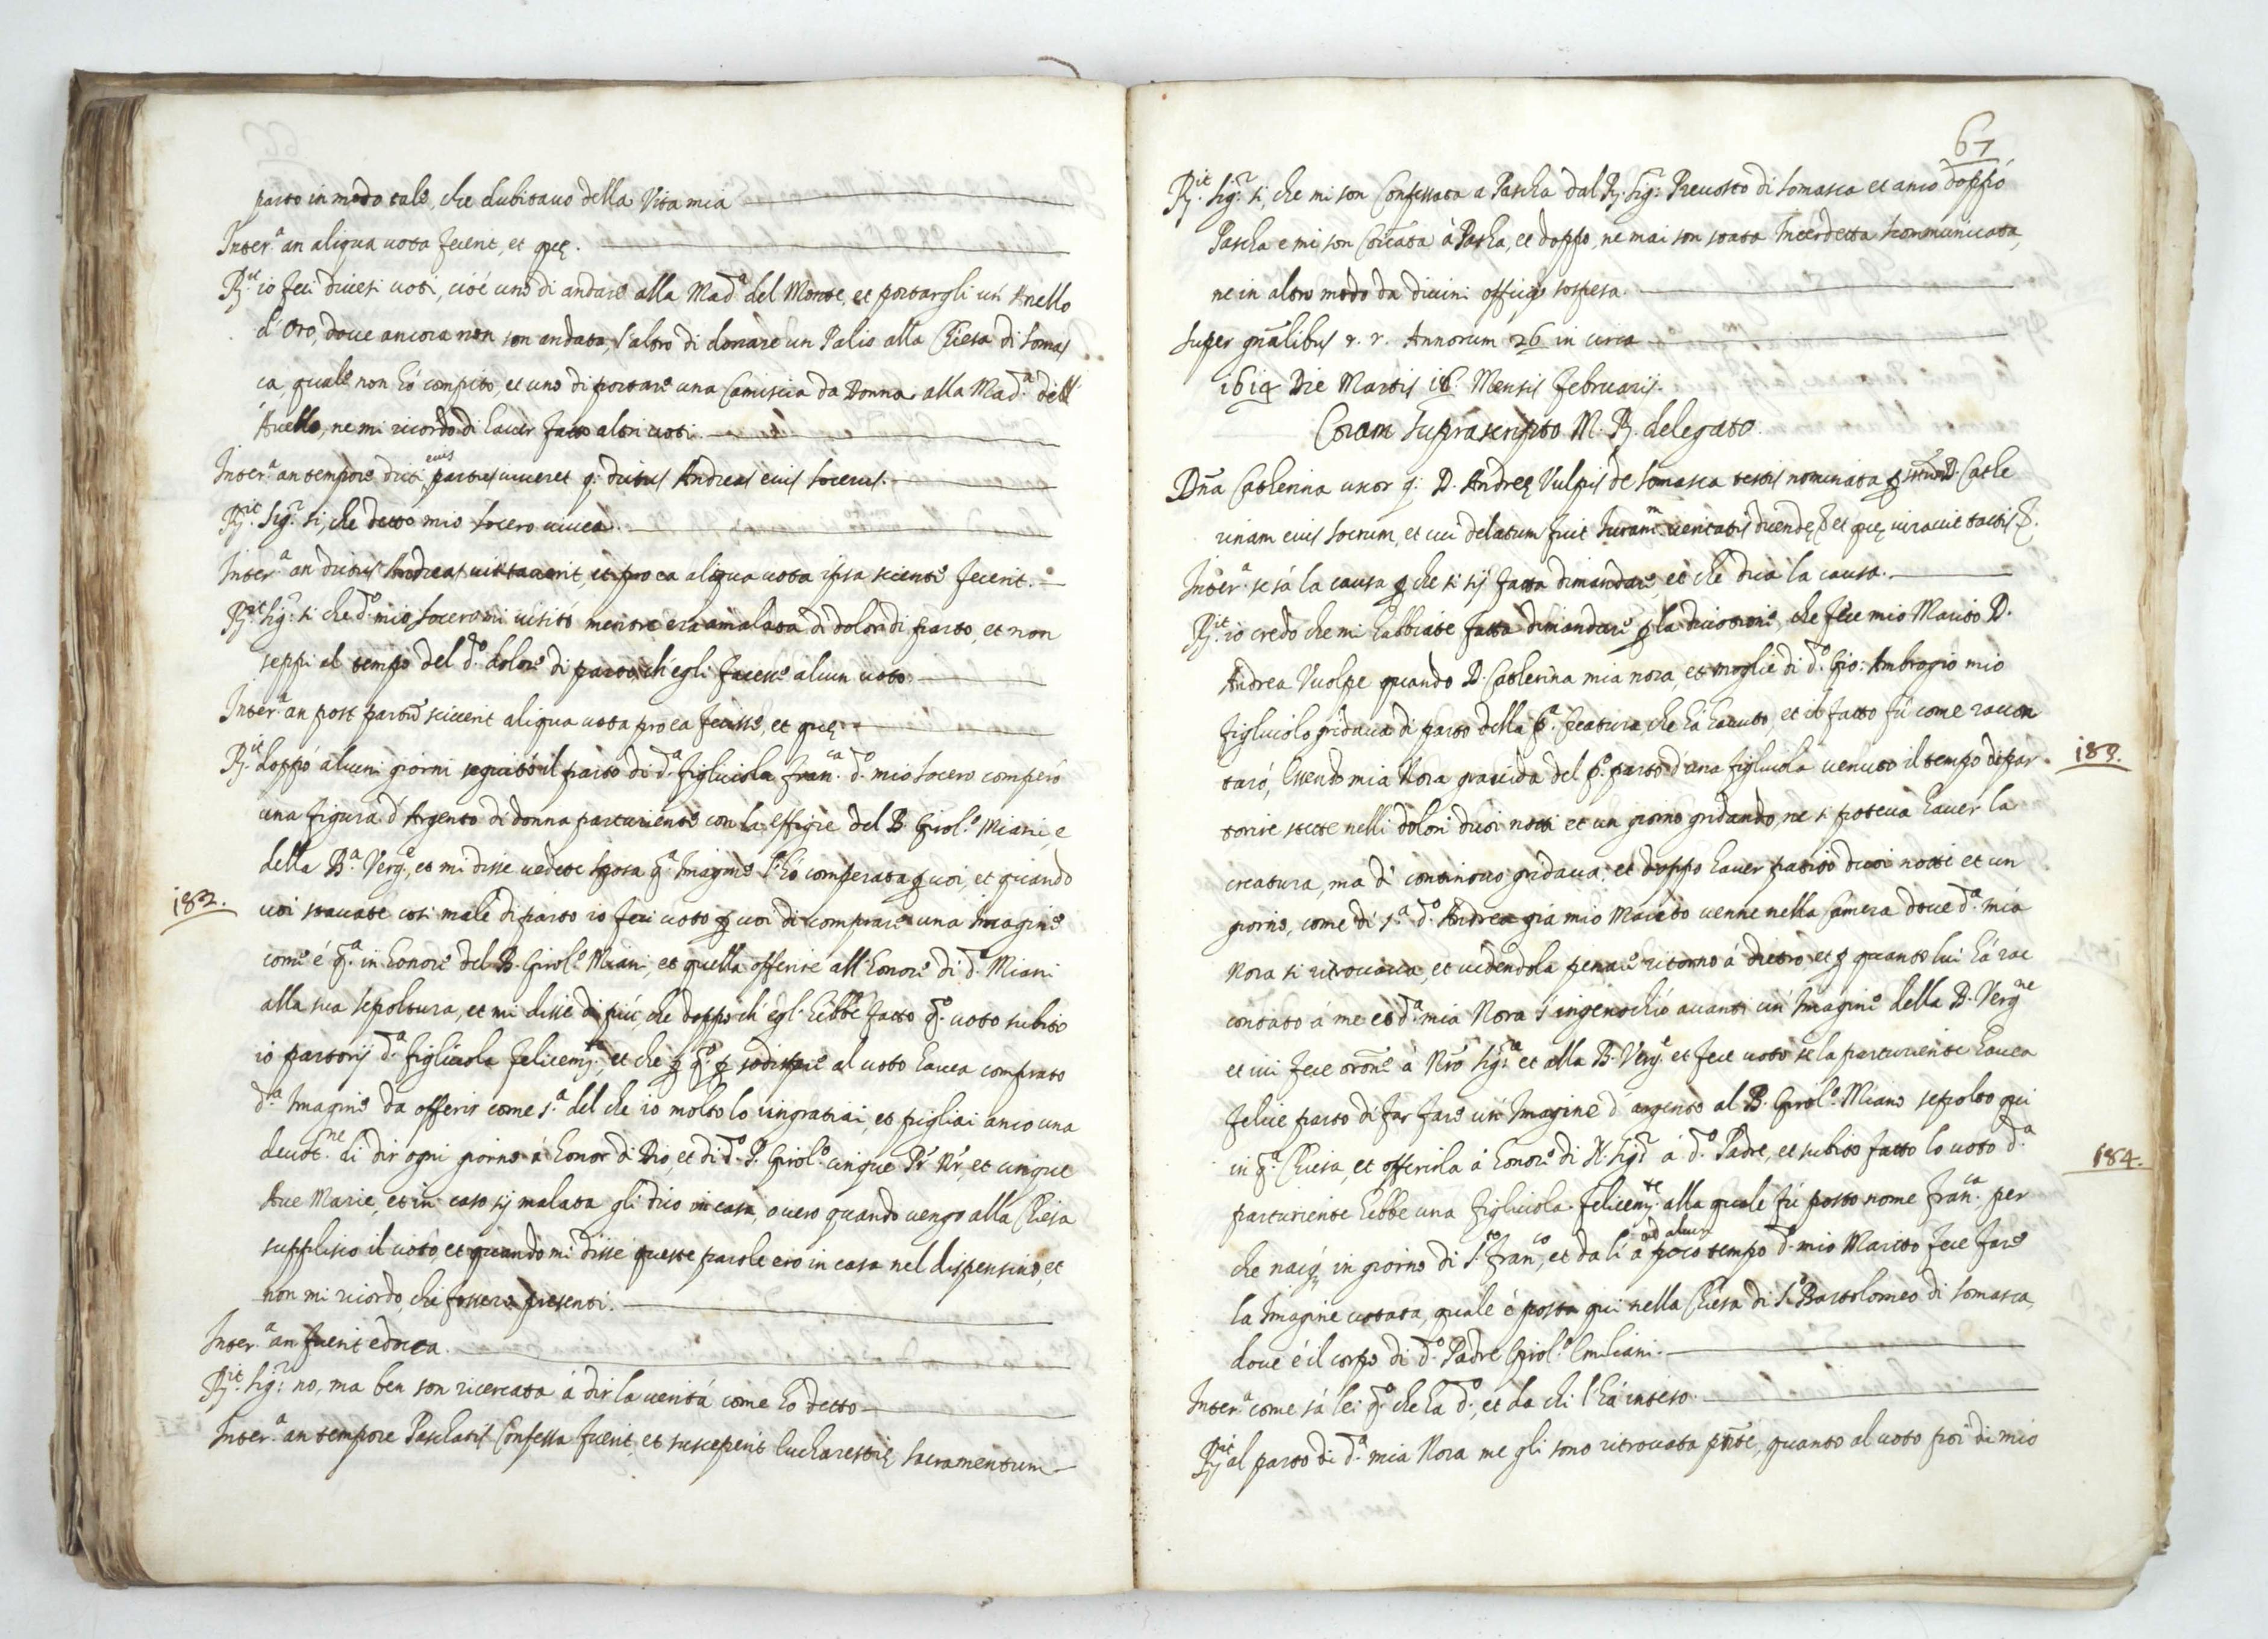 parto in modo tale, che dubitavo della Vita mia
Inter.ª an aliqua vota fecerit, et quę.
R.it io feci diversi voti, cioé uno di andare alla Mad.ª del Monte, et portargli un' Anello
d'Oro, dove ancora non son andata, l'altro di donare un Palio alla Chiesa di Somas
ca, quale non hó compito, et uno di portare una Camiscia da Donna alla Mad.ª dell'
Avello, ne mi ricordo di haver fatto altri voti.
Inter.ª an tempore dicti eius partus viveret q. dictus Andreas eius socerus.
R.it Sig.r si, che detto mio socero vivea.
Inter.ª an dictus Andreas visitaverit, et pro ea aliqua vota ipsa sciente fecerit.
R.it Sig.r si che d.º mio socero mi visitó mentre era amalata di dolori di parto, et non
seppi al tempo del d.º dolore di parto, ch'egli facesse alcun voto.
Inter.ª an post partũ sciverit aliqua vota pro ea fecisse, et quę.
R.it doppó alcuni giorni seguitó il parto di d.ª figliuola Fran.ca d.º mio socero comperó
una figura d'Argento di donna parturiente con la effigie del B. Girol.º Miani, e
della B.ª Verg.e, et mi disse vedete sposa q.ª Imagine l'hó comperata ꝑ voi, et quando
182.
voi stavate cosi male di parto io feci voto ꝑ voi di comprare una Imagine
come é q.ª in honore del B. Girol.º Miani, et quella offerire all'honore di d.º Miani
alla sua sepoltura, et mi disse di piú, che doppo ch'egl'hebbe fatto q.º voto subito
io partorij d.ª figliuola felicem.te, et che ꝑ q.º ꝑ sodisfare al voto havea comprato
d.ª Imagine da offerir come s.ª del che io molto lo ringratiai, et pigliai anco una
devot.ne di dir ogni giorno á honor di Dio, et di d.º P. Girol.º cinque Pr̃ Nr̃, et cinque
Ave Marie, et in caso sij malata gli dico in casa, overo quando vengo alla Chiesa
supplisco il voto, et quando mi disse queste parole ero in casa nel dispensino, et
non mi ricordo, che fossero presenti.
Inter.ª an fuerit edocta.
R.it Sig.r no, ma ben son ricercata á dir la veritá come ho detto
Inter.ª an tempore Paschatis Confessa fuerit, et susceperit Eucharestię sacramentum
67
R.it Sig.r si, che mi son Confessata a Pascha dal R. Sig.r Prevosto di Somasca et anco doppó
Pascha e mi son Coĩcata á Pascha, et doppo, ne mai son stata Interdetta scommunicata,
ne in altro modo da divini officij sospesa.
Super gñalibus r. r. Annorum 26 in circa
1614 Die Martis 18. Mensis Februarij.
Coram Suprascripto M. R. delegato.
Dña Catherina uxor q. D. Andreę Vulpis de Somasca testis nominata ꝑ D. Cathe
rinam eius socrum, et cui delatum fuit Iuram.m veritatis dicendę et quę iuravit tactis
Inter.ª se sá la causa ꝑche si sij fatta dimandare, et che dica la causa.
R.it io credo che mi habbiate fatta dimandare ꝑ la divotione, che fece mio Marito D.
Andrea Vuolpe quando D. Catherina mia nora, et moglie di d.º Gio: Ambrogio mio
figliuolo gridava di parto della p.ª creatura, che há havuto, et il fatto fú come raccon
183.
taró, Essendo mia Nora gravida del p.º parto d'una figliuola venuto il tempo di par
torire stette nelli dolori duoi notti et un giorno gridando, ne si poteva haver la
creatura, ma di continovo gridava, et doppo haver patito duoi notti et un
giorno, come di s.ª d.º Andrea giá mio Marito venne nella Camera dove d.ª mia
Nora si ritrovava, et vedendola penare ritornó á dietro, et ꝑ quanto lui há rac
contato á me et d.ª mia Nora s'ingenochió avanti un' Imagine della B. Verg.ne
et ivi fece orõne á Nr̃o Sig.re et alla B. Verg.e et fece voto se la parturiente havea
felice parto di far fare un' Imagine d'argento al B. Girol.º Miano sepolto qui
in q.ª Chiesa, et offerirla á honore di N. Sig.r á d.º Padre, et subito fatto lo voto d.ª
184.
parturiente hebbe una figliuola felicem.te alla quale fú posto nome Fran.ca per
che nacq. in giorno di S.to Fran.co, et da lí á poco ad alcun tempo d.º mio Marito fece fare
la Imagine votata, quale é posta qui nella Chiesa di S.º Bartolomeo di Somasca,
dove é il corpo di d.º Padre Girol.º Emiliani.
Inter.ª come sá lei q.º che ha d.º, et da chi l'há inteso.
R.it al parto di d.ª mia Nora me gli sono ritrovata pñte, quanto al voto poi di mio